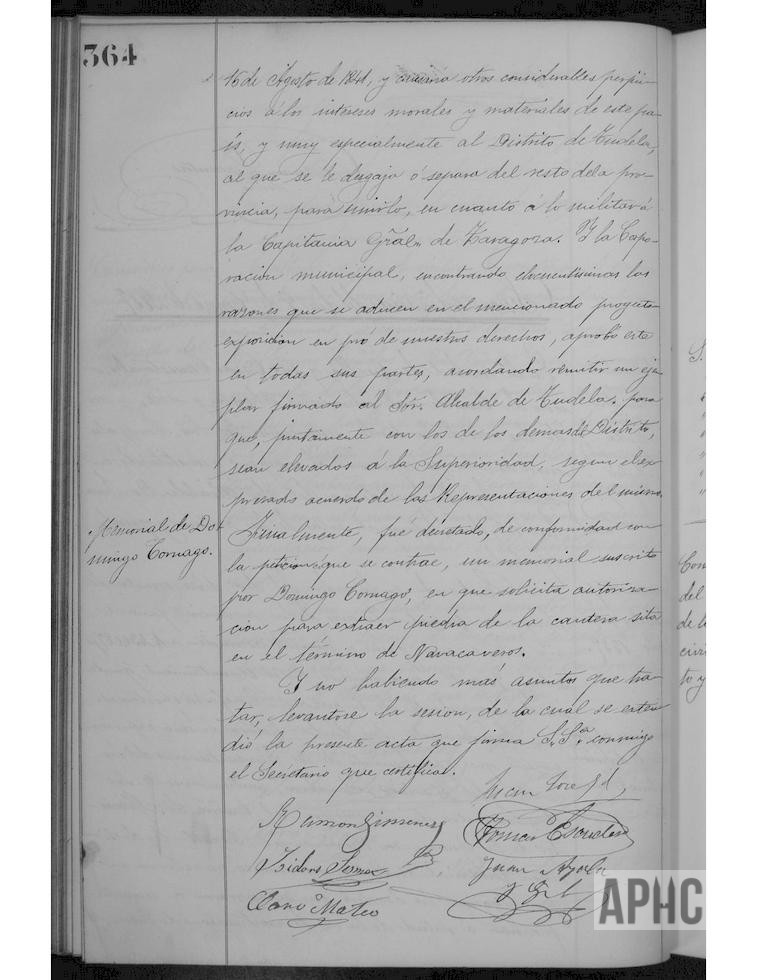 364
16 de Agosto de 1841, y otros considerables perjui-
cios á los intereses morales y materiales de este pa-
is, y muy especialmente al Distrito de Tudela,
al que se le desgaja ó separa del resto dela pro-
vincia, para unirlo, en cuanto á lo militar á
la Capitania Gral. de Zaragoza. Y la Capo-
racion municipal, encontrando elocuentisimas las
razones que se aducen en el mencionado proyecto
exposicion en pró de nuestros derechos, aprobó este
en todas sus partes, acordando remitir un ejem-
plar firmado al Sr. Alcalde de Tudela, para
que, juntamente con los de los demas de Distrito,
sean elevados á la Superioridad, segun el ex-
presado acuerdo de las Representaciones del mismo.
Memorial de Do-
mingo Cornago.
Finalmente, fué decretado, de conformidad con
la peticion que se contrae, un memorial suscrito
por Domingo Cornago, en que solicita autoriza-
cion para extraer piedra de la cantera sita
en el término de Navacaveros.
Y no habiendo más asuntos que tra-
tar, levantose la sesion, de la cual se exten-
dió la presente acta que firma S. Sª. conmigo
el Secretario que certifica.
Juan José Gil,
Ramon Gimenez
Tomas Escudero
Isidoro
Juan Ayala
y Gil
Mateo
S.
"
"
"
"
"
del
de l
civi
to y
APHC